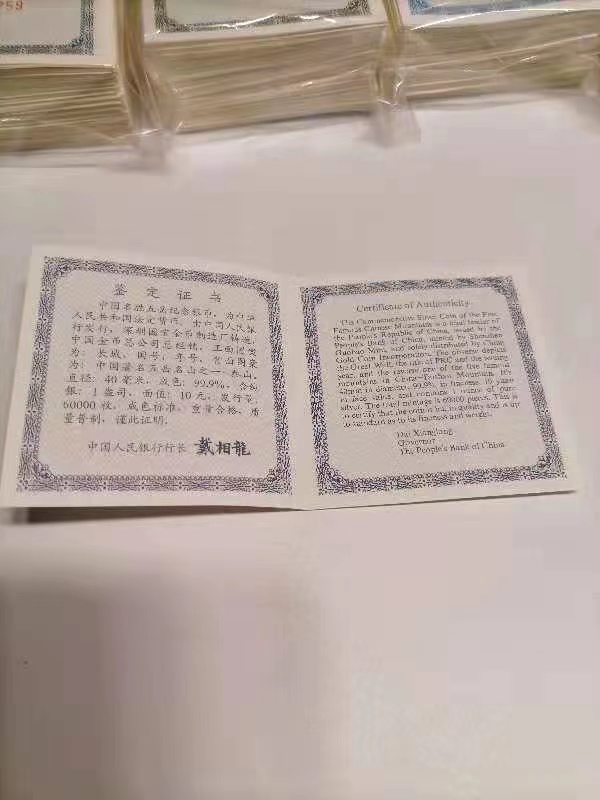 259
鉴定证书
中国名胜五岳纪念银币，为中华
人民共和国法定货币，由中国人民银
行发行，深圳国宝金币制造厂铸造，
中国金币总公司总经销。正面图案
为：长城、国号、年号，背面图案
为：中国著名五岳名山之一-泰山，
直径：40毫米，成色：99.9%，含纯
银：1盎司，面值：10元，发行量：
60000枚，成色标准，重量合格，质
量普制，谨此证明。
中国人民银行行长 戴相龍
Certificate of Authenticity
The Commemorative Silver Coin of the Five
Famous Chinese Mountains is a legal tender of
the People's Republic of China, issued by the
People's Bank of China, minted by Shenzhen
Guobao Mint, and solely distributed by China
Gold Coin Incorporation. The obverse depicts
the Great Wall, the title of PRC and the issuing
year, and the reverse one of five famous
mountains in China—Taishan Mountain. It's
40mm in diameter, 99.9% in fineness, 10 yuan
in face value, and contains 1 ounce of pure
silver. The total mintage is 60000 pieces. This is
to certify that the coin is in quality and is up
to standard as to its fineness and weight.
Dai Xianglong
Governor
The People's Bank of China